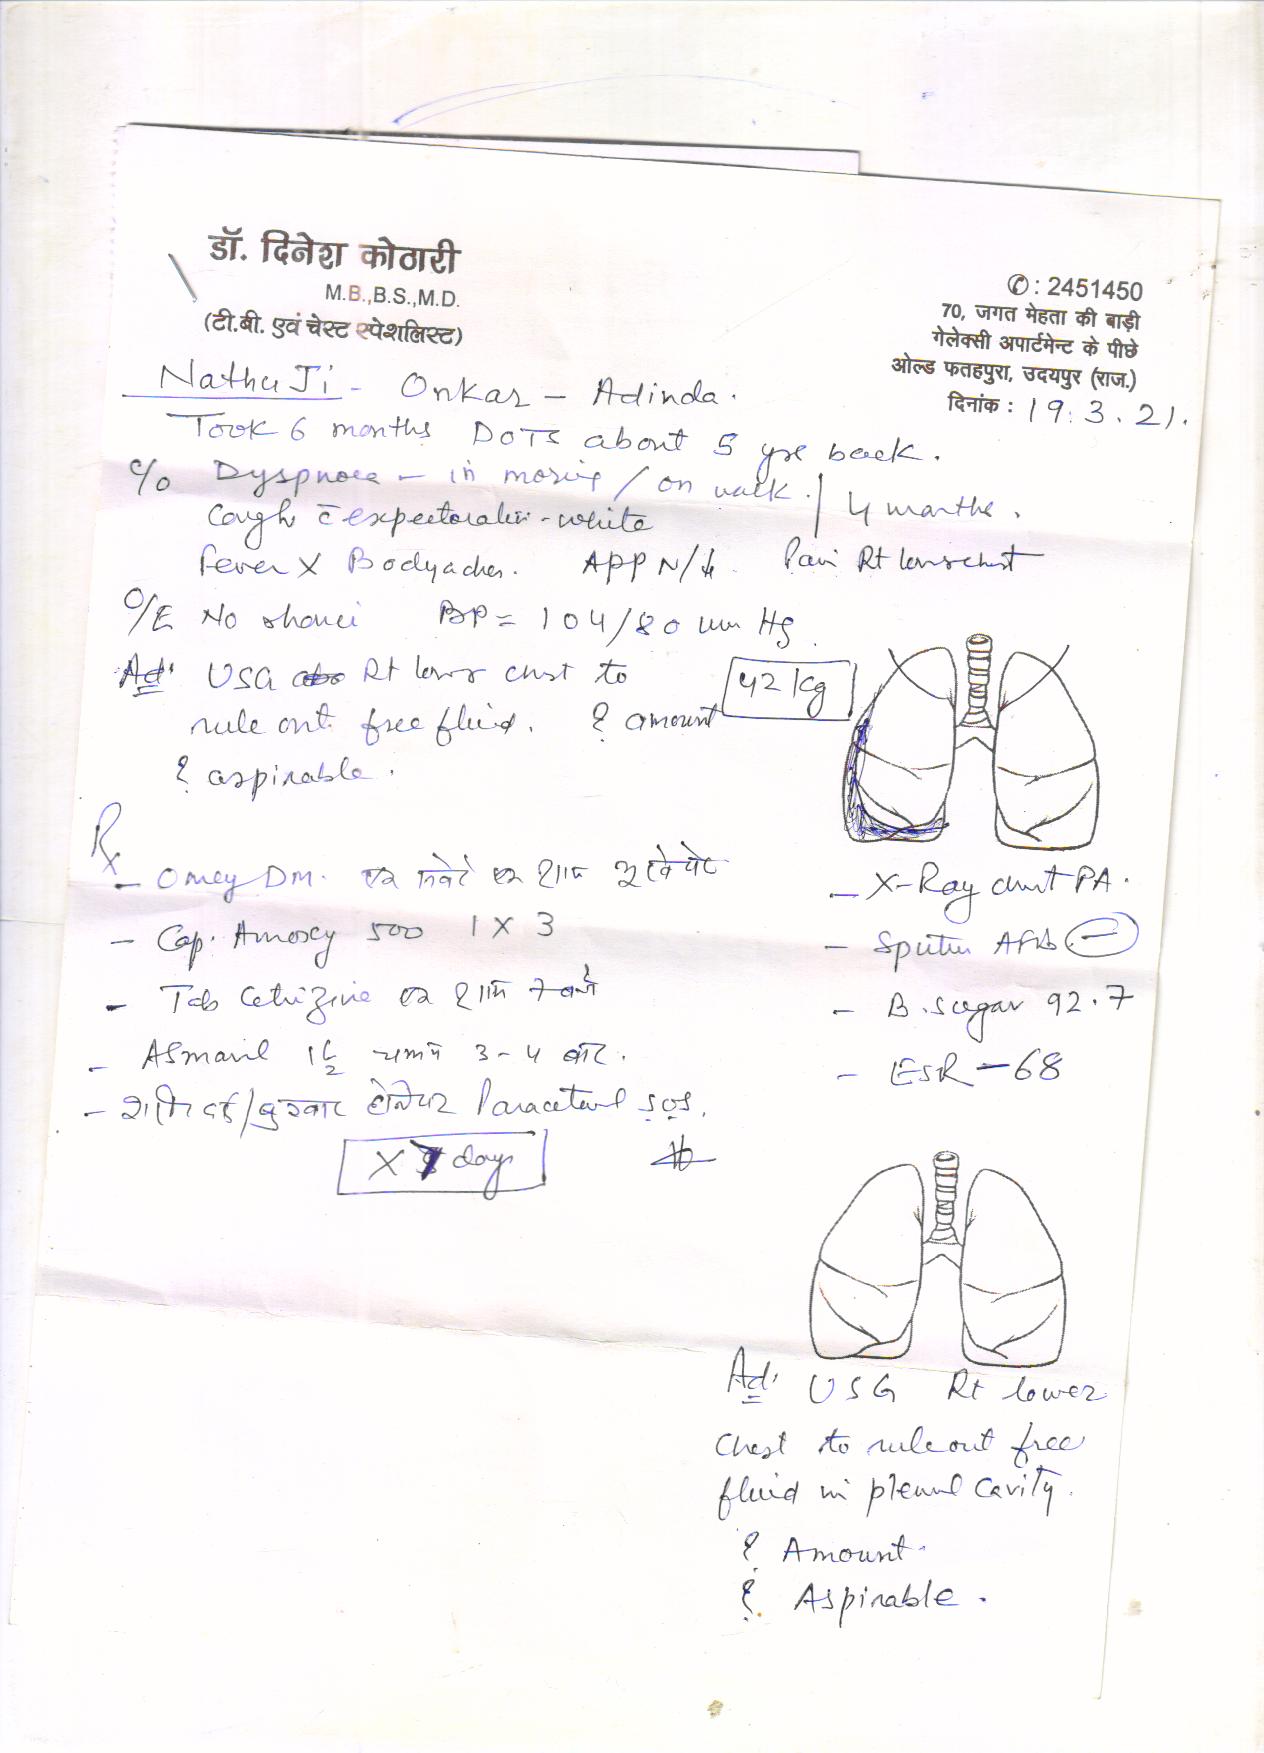 डॉ. दिनेश कोठारी
M.B.,B.S.,M.D.
(टी.बी. एवं चेस्ट स्पेशलिस्ट)
✆: 2451450
70, जगत मेहता की बाड़ी
गेलेक्सी अपार्टमेन्ट के पीछे
ओल्ड फतहपुरा, उदयपुर (राज.)
दिनांक : 19.3.21.
Nathu Ji - Onkar - Adinda.
Took 6 months DOTS about 5 yrs back.
C/o Dyspnoea - in morning / on walk. | 4 months.
Cough c̄ expectoration - white
Fever X Bodyaches. APP N/↓ Pain Rt lower chest
O/E No BP = 104/80 mm Hg
Ad: USG Rt lower chest to
rule out free fluid. ? amount
? aspirable.
42 kg
Rx
- Omey DM. एक सवेरे एक शाम भूखे पेट
- Cap. Amoxy 500 1 X 3
- Tab Cetrizine एक शाम 7 बजे
- Asmanil 1½ चम्मच 3-4 बार.
- बुखार होने पर Paracetamol SOS.
X 7 days
- X-Ray chest PA.
- Sputum AFB -
- B. sugar 92.7
- ESR - 68
Ad: USG Rt lower
chest to rule out free
fluid in pleural cavity.
? Amount.
? Aspirable.